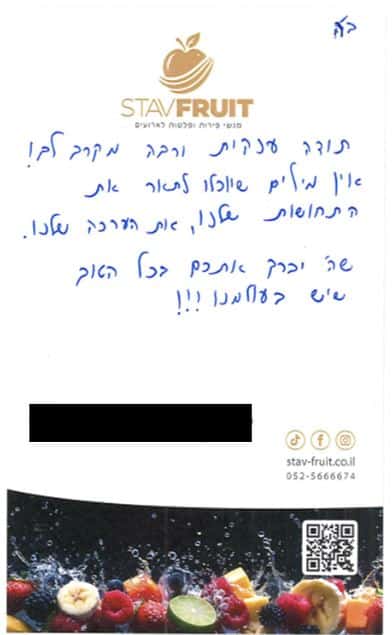 בה
STAVFRUIT
מגשי פירות ופלטות לארועים
תודה ענקית ורבה מקרב לב!
אין מילים שיוכלו לתאר את
התחושות שלנו, את הערכה שלנו.
שה' יברך אתכם בכל הטוב
שיש בעולמנו !!!
stav-fruit.co.il
052-5666674